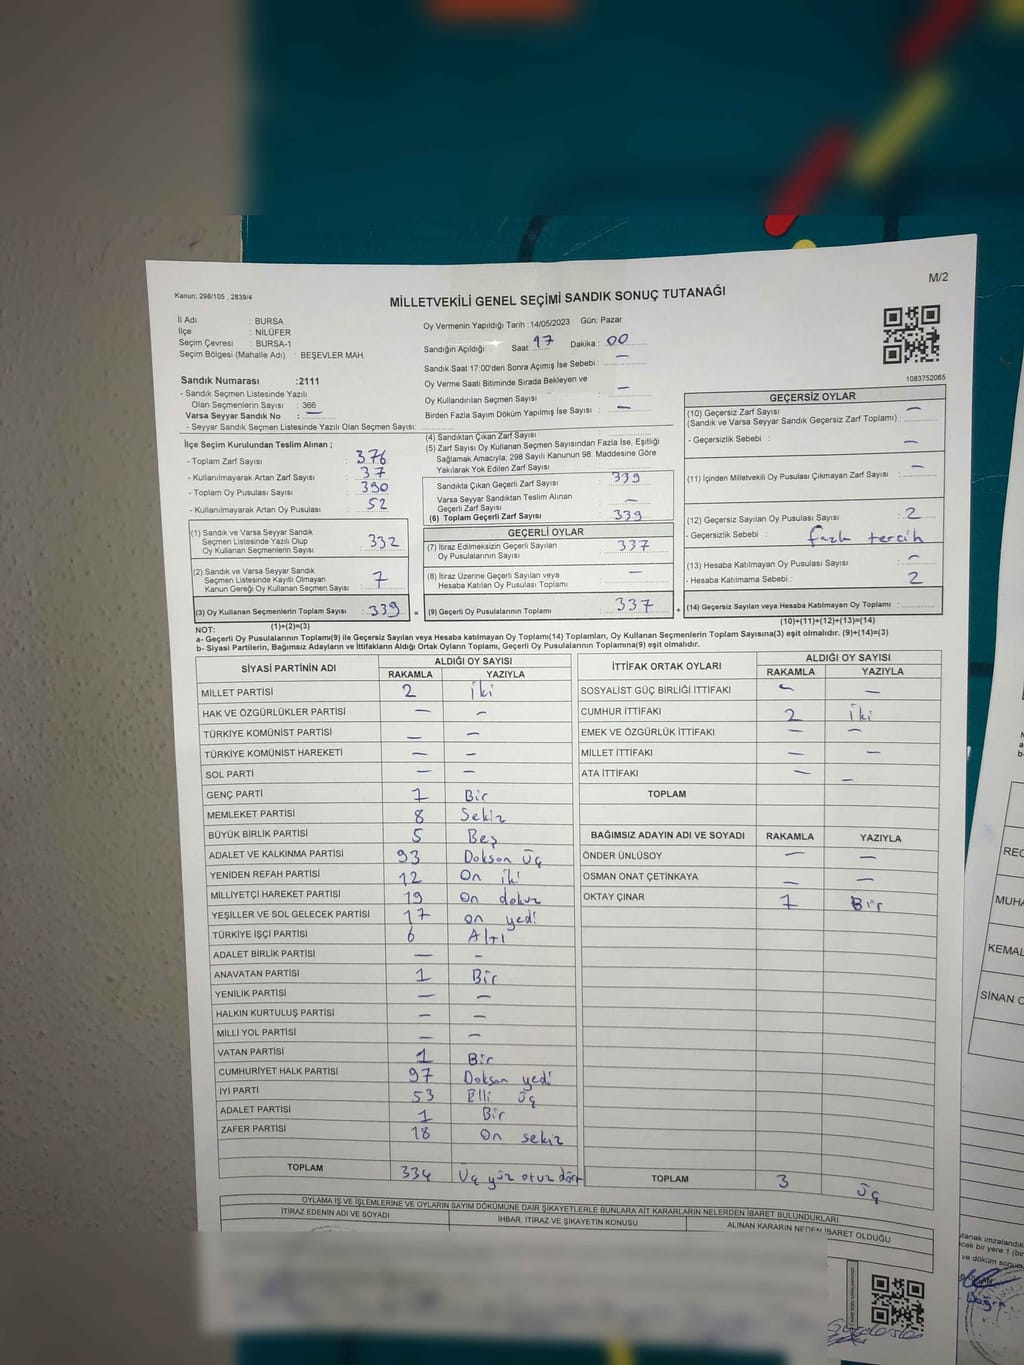 M/2
Kanun; 298/105 , 2839/4
MİLLETVEKİLİ GENEL SEÇİMİ SANDIK SONUÇ TUTANAĞI
İl Adı : BURSA
İlçe : NİLÜFER
Seçim Çevresi : BURSA-1
Seçim Bölgesi (Mahalle Adı) : BEŞEVLER MAH.
Sandık Numarası :2111
- Sandık Seçmen Listesinde Yazılı
Olan Seçmenlerin Sayısı : 366
Varsa Seyyar Sandık No : —
- Seyyar Sandık Seçmen Listesinde Yazılı Olan Seçmen Sayısı:
Oy Vermenin Yapıldığı Tarih :14/05/2023 Gün: Pazar
Sandığın Açıldığı Saat: 17 Dakika : 00
Sandık Saat 17:00'den Sonra Açımış İse Sebebi : —
Oy Verme Saati Bitiminde Sırada Bekleyen ve
Oy Kullandırılan Seçmen Sayısı : —
Birden Fazla Sayım Döküm Yapılmış İse Sayısı : —
1083752065
İlçe Seçim Kurulundan Teslim Alınan ;
- Toplam Zarf Sayısı : 376
- Kullanılmayarak Artan Zarf Sayısı : 37
- Toplam Oy Pusulası Sayısı : 390
- Kullanılmayarak Artan Oy Pusulası : 52
(1) Sandık ve Varsa Seyyar Sandık
Seçmen Listesinde Yazılı Olup
Oy Kullanan Seçmenlerin Sayısı : 332
(2) Sandık ve Varsa Seyyar Sandık
Seçmen Listesinde Kayıtlı Olmayan
Kanun Gereği Oy Kullanan Seçmen Sayısı : 7
(3) Oy Kullanan Seçmenlerin Toplam Sayısı : 339 =
(1)+(2)=(3)
(4) Sandıktan Çıkan Zarf Sayısı :
(5) Zarf Sayısı Oy Kullanan Seçmen Sayısından Fazla İse, Eşitliği
Sağlamak Amacıyla; 298 Sayılı Kanunun 98. Maddesine Göre
Yakılarak Yok Edilen Zarf Sayısı :
Sandıkta Çıkan Geçerli Zarf Sayısı : 339
Varsa Seyyar Sandıktan Teslim Alınan
Geçerli Zarf Sayısı : —
(6) Toplam Geçerli Zarf Sayısı : 339
GEÇERLİ OYLAR
(7) İtiraz Edilmeksizin Geçerli Sayılan
Oy Pusulalarının Sayısı : 337
(8) İtiraz Üzerine Geçerli Sayılan veya
Hesaba Katılan Oy Pusulası Toplamı : —
(9) Geçerli Oy Pusulalarının Toplamı : 337 +
GEÇERSİZ OYLAR
(10) Geçersiz Zarf Sayısı : —
(Sandık ve Varsa Seyyar Sandık Geçersiz Zarf Toplamı)
- Geçersizlik Sebebi : —
(11) İçinden Milletvekili Oy Pusulası Çıkmayan Zarf Sayısı : —
(12) Geçersiz Sayılan Oy Pusulası Sayısı : 2
- Geçersizlik Sebebi : fazla tercih
(13) Hesaba Katılmayan Oy Pusulası Sayısı : —
- Hesaba Katılmama Sebebi : 2
(14) Geçersiz Sayılan veya Hesaba Katılmayan Oy Toplamı :
(10)+(11)+(12)+(13)=(14)
NOT:
a- Geçerli Oy Pusulalarının Toplamı(9) ile Geçersiz Sayılan veya Hesaba katılmayan Oy Toplamı(14) Toplamları, Oy Kullanan Seçmenlerin Toplam Sayısına(3) eşit olmalıdır. (9)+(14)=(3)
b- Siyasi Partilerin, Bağımsız Adayların ve İttifakların Aldığı Ortak Oyların Toplamı, Geçerli Oy Pusulalarının Toplamına(9) eşit olmalıdır.
SİYASİ PARTİNİN ADI ALDIĞI OY SAYISI
RAKAMLA YAZIYLA
MİLLET PARTİSİ 2 iki
HAK VE ÖZGÜRLÜKLER PARTİSİ — —
TÜRKİYE KOMÜNİST PARTİSİ — —
TÜRKİYE KOMÜNİST HAREKETİ — —
SOL PARTİ — —
GENÇ PARTİ 1 Bir
MEMLEKET PARTİSİ 8 Sekiz
BÜYÜK BİRLİK PARTİSİ 5 Beş
ADALET VE KALKINMA PARTİSİ 93 Doksan üç
YENİDEN REFAH PARTİSİ 12 On iki
MİLLİYETÇİ HAREKET PARTİSİ 19 On dokuz
YEŞİLLER VE SOL GELECEK PARTİSİ 17 on yedi
TÜRKİYE İŞÇİ PARTİSİ 6 Altı
ADALET BİRLİK PARTİSİ — —
ANAVATAN PARTİSİ 1 Bir
YENİLİK PARTİSİ — —
HALKIN KURTULUŞ PARTİSİ — —
MİLLİ YOL PARTİSİ — —
VATAN PARTİSİ 1 Bir
CUMHURİYET HALK PARTİSİ 97 Doksan yedi
İYİ PARTİ 53 Elli üç
ADALET PARTİSİ 1 Bir
ZAFER PARTİSİ 18 On sekiz
TOPLAM 334 Üç yüz otuz dört
İTTİFAK ORTAK OYLARI ALDIĞI OY SAYISI
RAKAMLA YAZIYLA
SOSYALİST GÜÇ BİRLİĞİ İTTİFAKI — —
CUMHUR İTTİFAKI 2 iki
EMEK VE ÖZGÜRLÜK İTTİFAKI — —
MİLLET İTTİFAKI — —
ATA İTTİFAKI — —
TOPLAM
BAĞIMSIZ ADAYIN ADI VE SOYADI RAKAMLA YAZIYLA
ÖNDER ÜNLÜSOY — —
OSMAN ONAT ÇETİNKAYA — —
OKTAY ÇINAR 1 Bir
TOPLAM 3 üç
OYLAMA İŞ VE İŞLEMLERİNE VE OYLARIN SAYIM DÖKÜMÜNE DAİR ŞİKAYETLERLE BUNLARA AİT KARARLARIN NELERDEN İBARET BULUNDUKLARI
İTİRAZ EDENİN ADI VE SOYADI İHBAR, İTİRAZ VE ŞİKAYETİN KONUSU ALINAN KARARIN NEDEN İBARET OLDUĞU
KEMAL
SİNAN